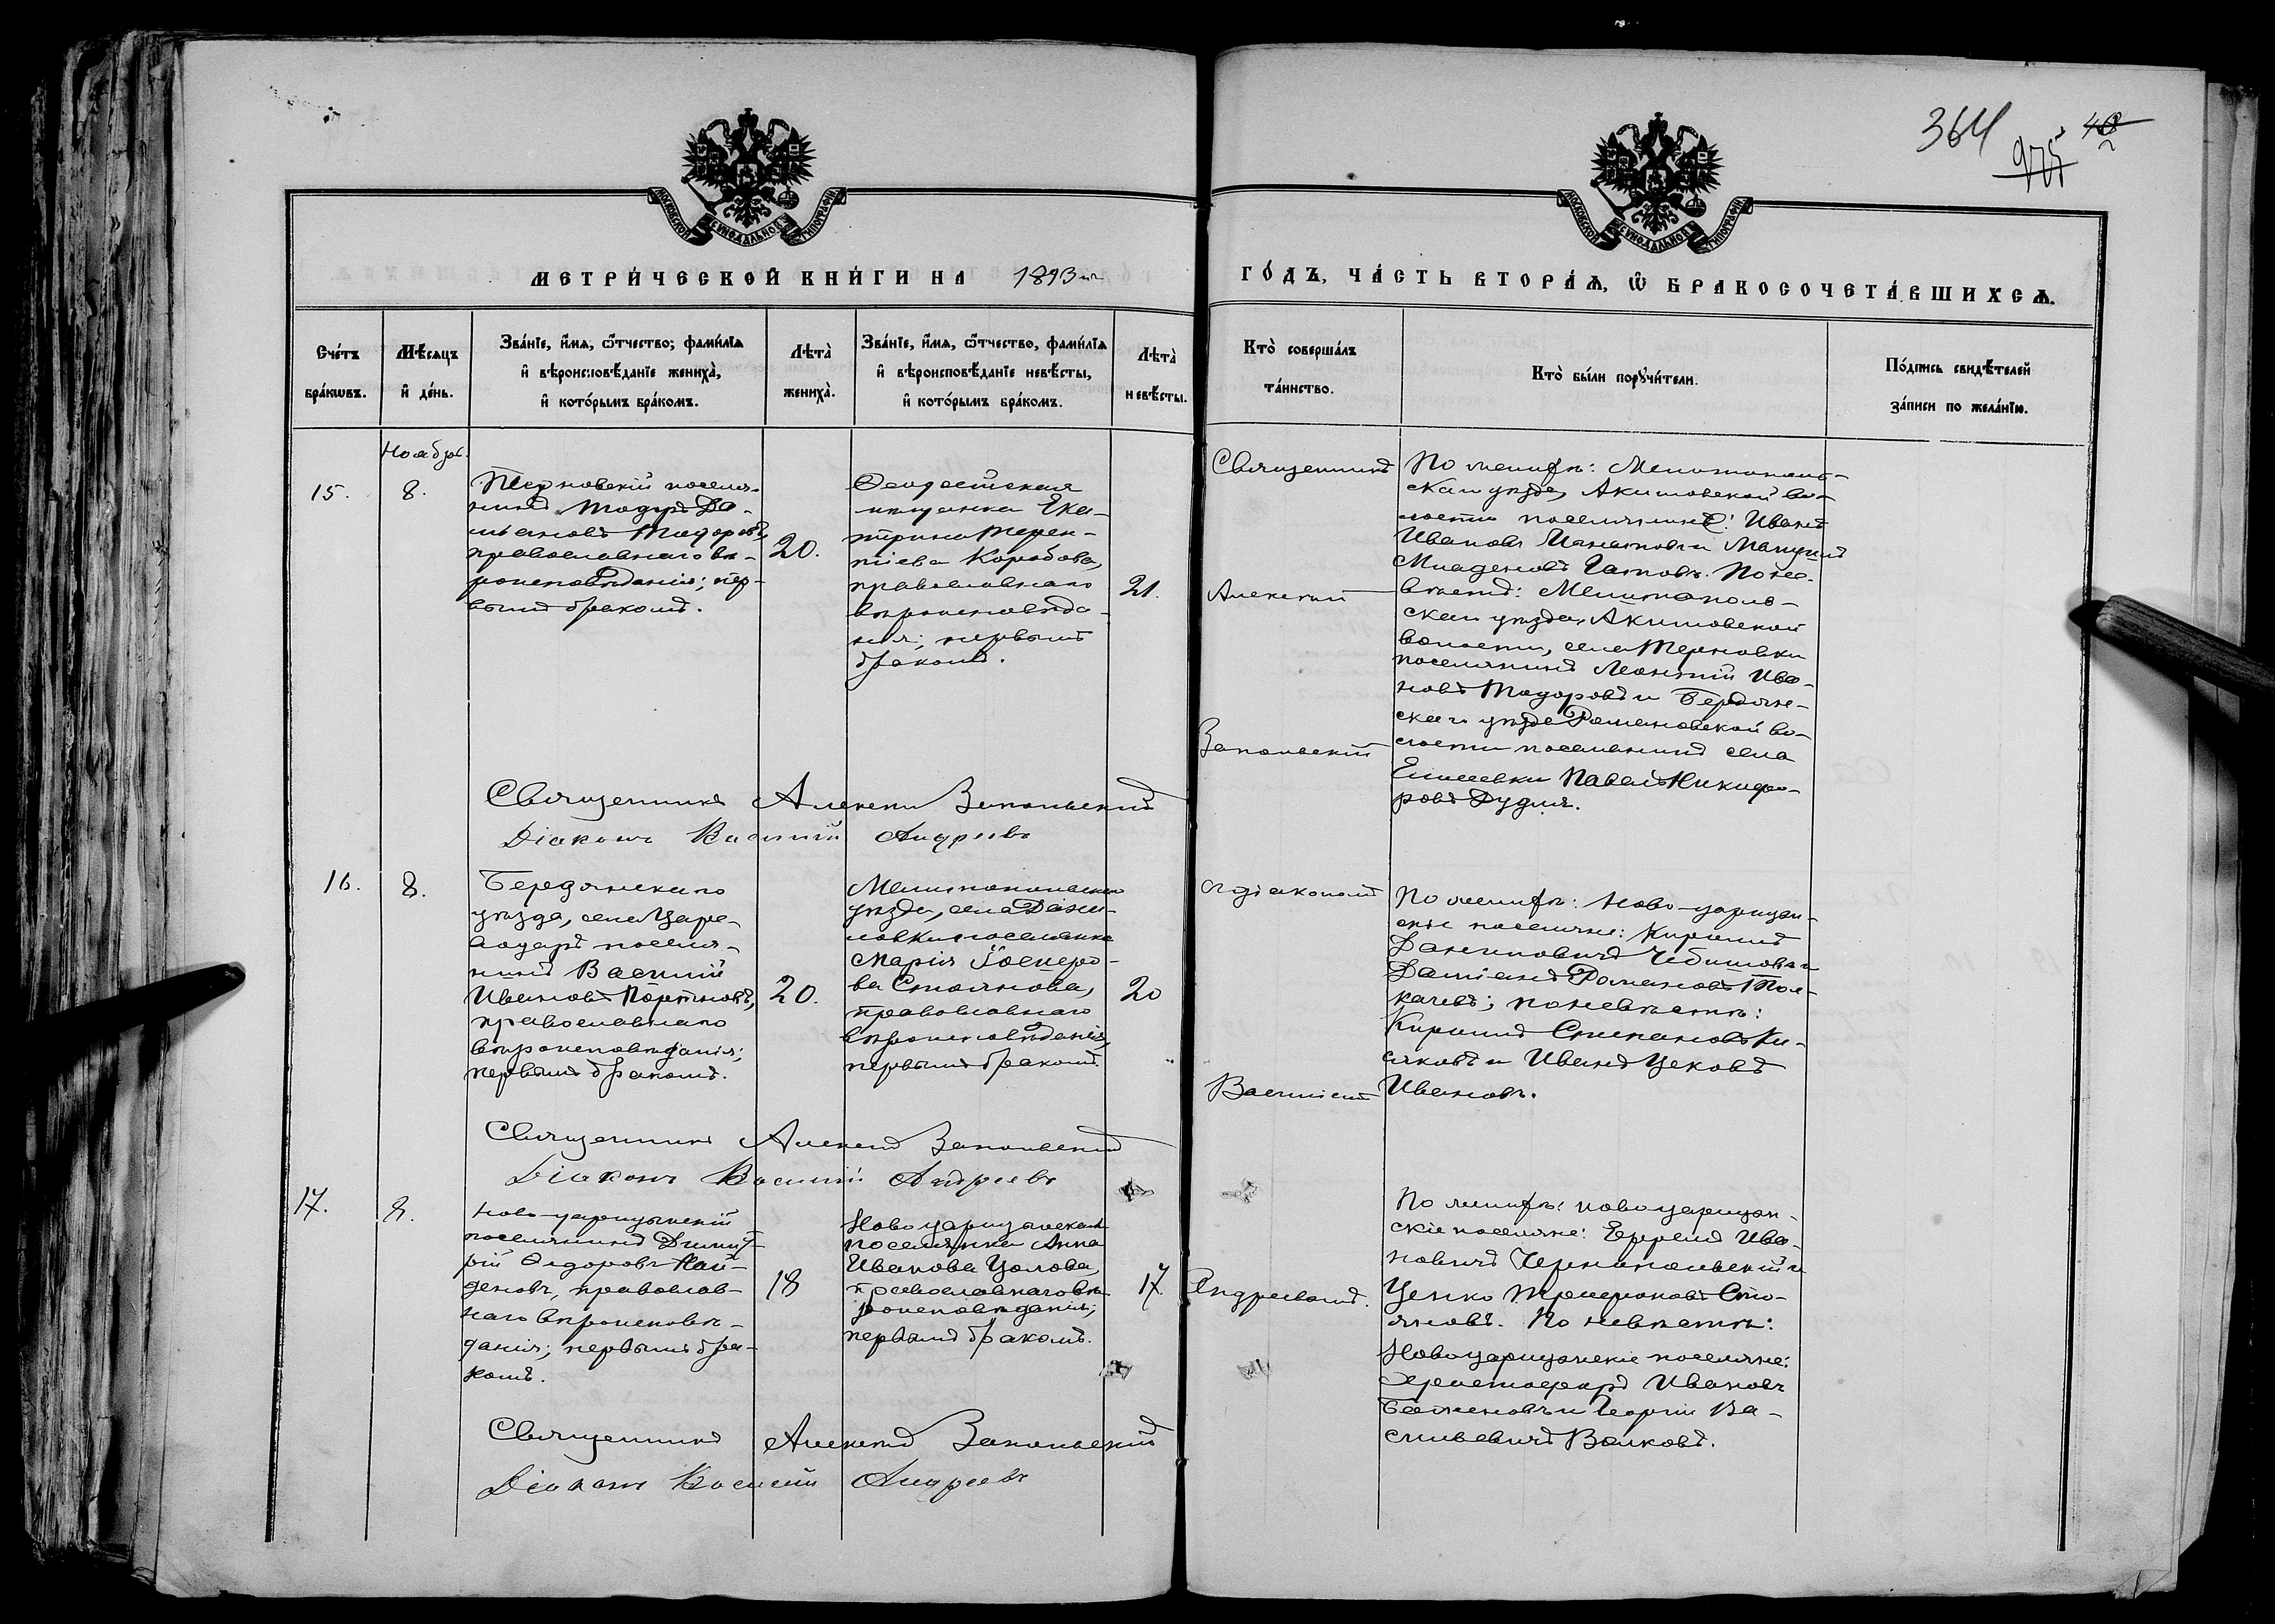 364
975
40
МОСКОВСКОЙ СѴНОДАЛЬНОЙ ТИПОГРАФІИ
МОСКОВСКОЙ СѴНОДАЛЬНОЙ ТИПОГРАФІИ
МЕТРИ́ЧЕСКОЙ КНИ́ГИ НА 1893
ГО́ДЪ, ЧА́СТЬ ВТОРА́Ѧ, Ѽ БРАКОСОЧЕТА́ВШИХСѦ.
Сче́тъ бра́кѡвъ.
Мѣ́сяцъ и҆ де́нь.
Зва́нїе, и҆́мѧ, ѻ҆́тчество, фами́лїѧ
и҆ вѣроисповѣ́данїе жениха̀,
и҆ кото́рымъ бра́комъ.
Лѣта̀ жениха̀.
Зва́нїе, и҆́мѧ, ѻ҆́тчество, фами́лїѧ
и҆ вѣроисповѣ́данїе невѣ́сты,
и҆ кото́рымъ бра́комъ.
Лѣта̀ невѣ́сты.
Кто̀ соверша́лъ та́инство.
Кто̀ бы́ли порꙋчи́тели.
По́дпись свидѣ́телей
за́писи по жела́нїю.
Ноября.
15.
8.
Терновскій поселя-
нинъ Тодоръ Да-
міановъ Тодоровъ,
православнаго вѣ-
роисповѣданія; пер-
вымъ бракомъ.
20.
Феодосійская
мѣщанка Ека-
терина Терен-
тіева Коробова,
православнаго
вѣроисповѣда-
нія; первымъ
бракомъ.
21.
Священникъ
Алексій
Запольскій
По женихѣ: Мелитополь-
скаго уѣзда, Акимовской во-
лости поселяне: Иванъ
Ивановъ Игнатовъ и
Младеновъ Гатовъ. По не-
вѣстѣ: Мелитополь-
скаго уѣзда, Акимовской
волости, села Терновки
поселянинъ Леонтій Ива-
новъ Тодоровъ и Бердян-
скаго уѣзда Романовской во-
лости поселянинъ села
Елисеевки Павелъ Никифо-
ровъ Дудля.
Священникъ Алексій Запольскій
Діаконъ Василій Андреевъ
16.
8.
Бердянскаго
уѣзда, села Царе-
водаръ поселя-
нинъ Василій
Ивановъ Портновъ,
православнаго
вѣроисповѣданія;
первымъ бракомъ.
20.
Мелитопольскаго
уѣзда, села Дани-
ловки поселянка
Марія
Стоянова,
православнаго
вѣроисповѣданія,
первымъ бракомъ.
20
съ діакономъ
Василіемъ
По женихѣ: Ново-царицын-
скіе поселяне: Кириллъ
Даниловичъ и
Даміанъ Романовъ Тол-
качевъ; по невѣстѣ:
Кириллъ Степановъ Ки-
сяковъ и Иванъ Цековъ
Ивановъ.
Священникъ Алексій Запольскій
Діаконъ Василій Андреевъ
17.
8.
Ново-царицынскій
поселянинъ Димит-
рій Ѳедоровъ Най-
деновъ, православ-
наго вѣроисповѣ-
данія; первымъ бра-
комъ.
18
Новоцарицынская
поселянка Анна
Иванова Цолова,
православнаго вѣ-
роисповѣданія;
первымъ бракомъ.
17.
Андреевымъ.
По женихѣ: новоцарицын-
скіе поселяне: Ефремъ Ива-
новичъ Чернопольскій и
Ценко Трифоновъ Сто-
яновъ. По невѣстѣ:
Новоцарицынскіе поселяне:
Христофоръ Ивановъ
Баженовъ и Георгій Ва-
сильевичъ Волковъ.
Священникъ Алексій Запольскій
Діаконъ Василій Андреевъ